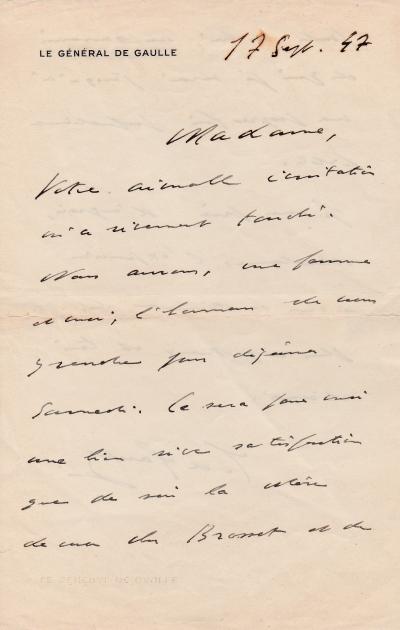 LE GÉNÉRAL DE GAULLE
17 Sept. 47
Madame,
Votre aimable invitation
m'a vivement touché.
Nous aurons, ma femme
et moi, l'honneur de nous
y rendre pour déjeuner
Samedi. Ce sera pour moi
une bien vive satisfaction
que de voir la mère
de mon cher Brosset et de